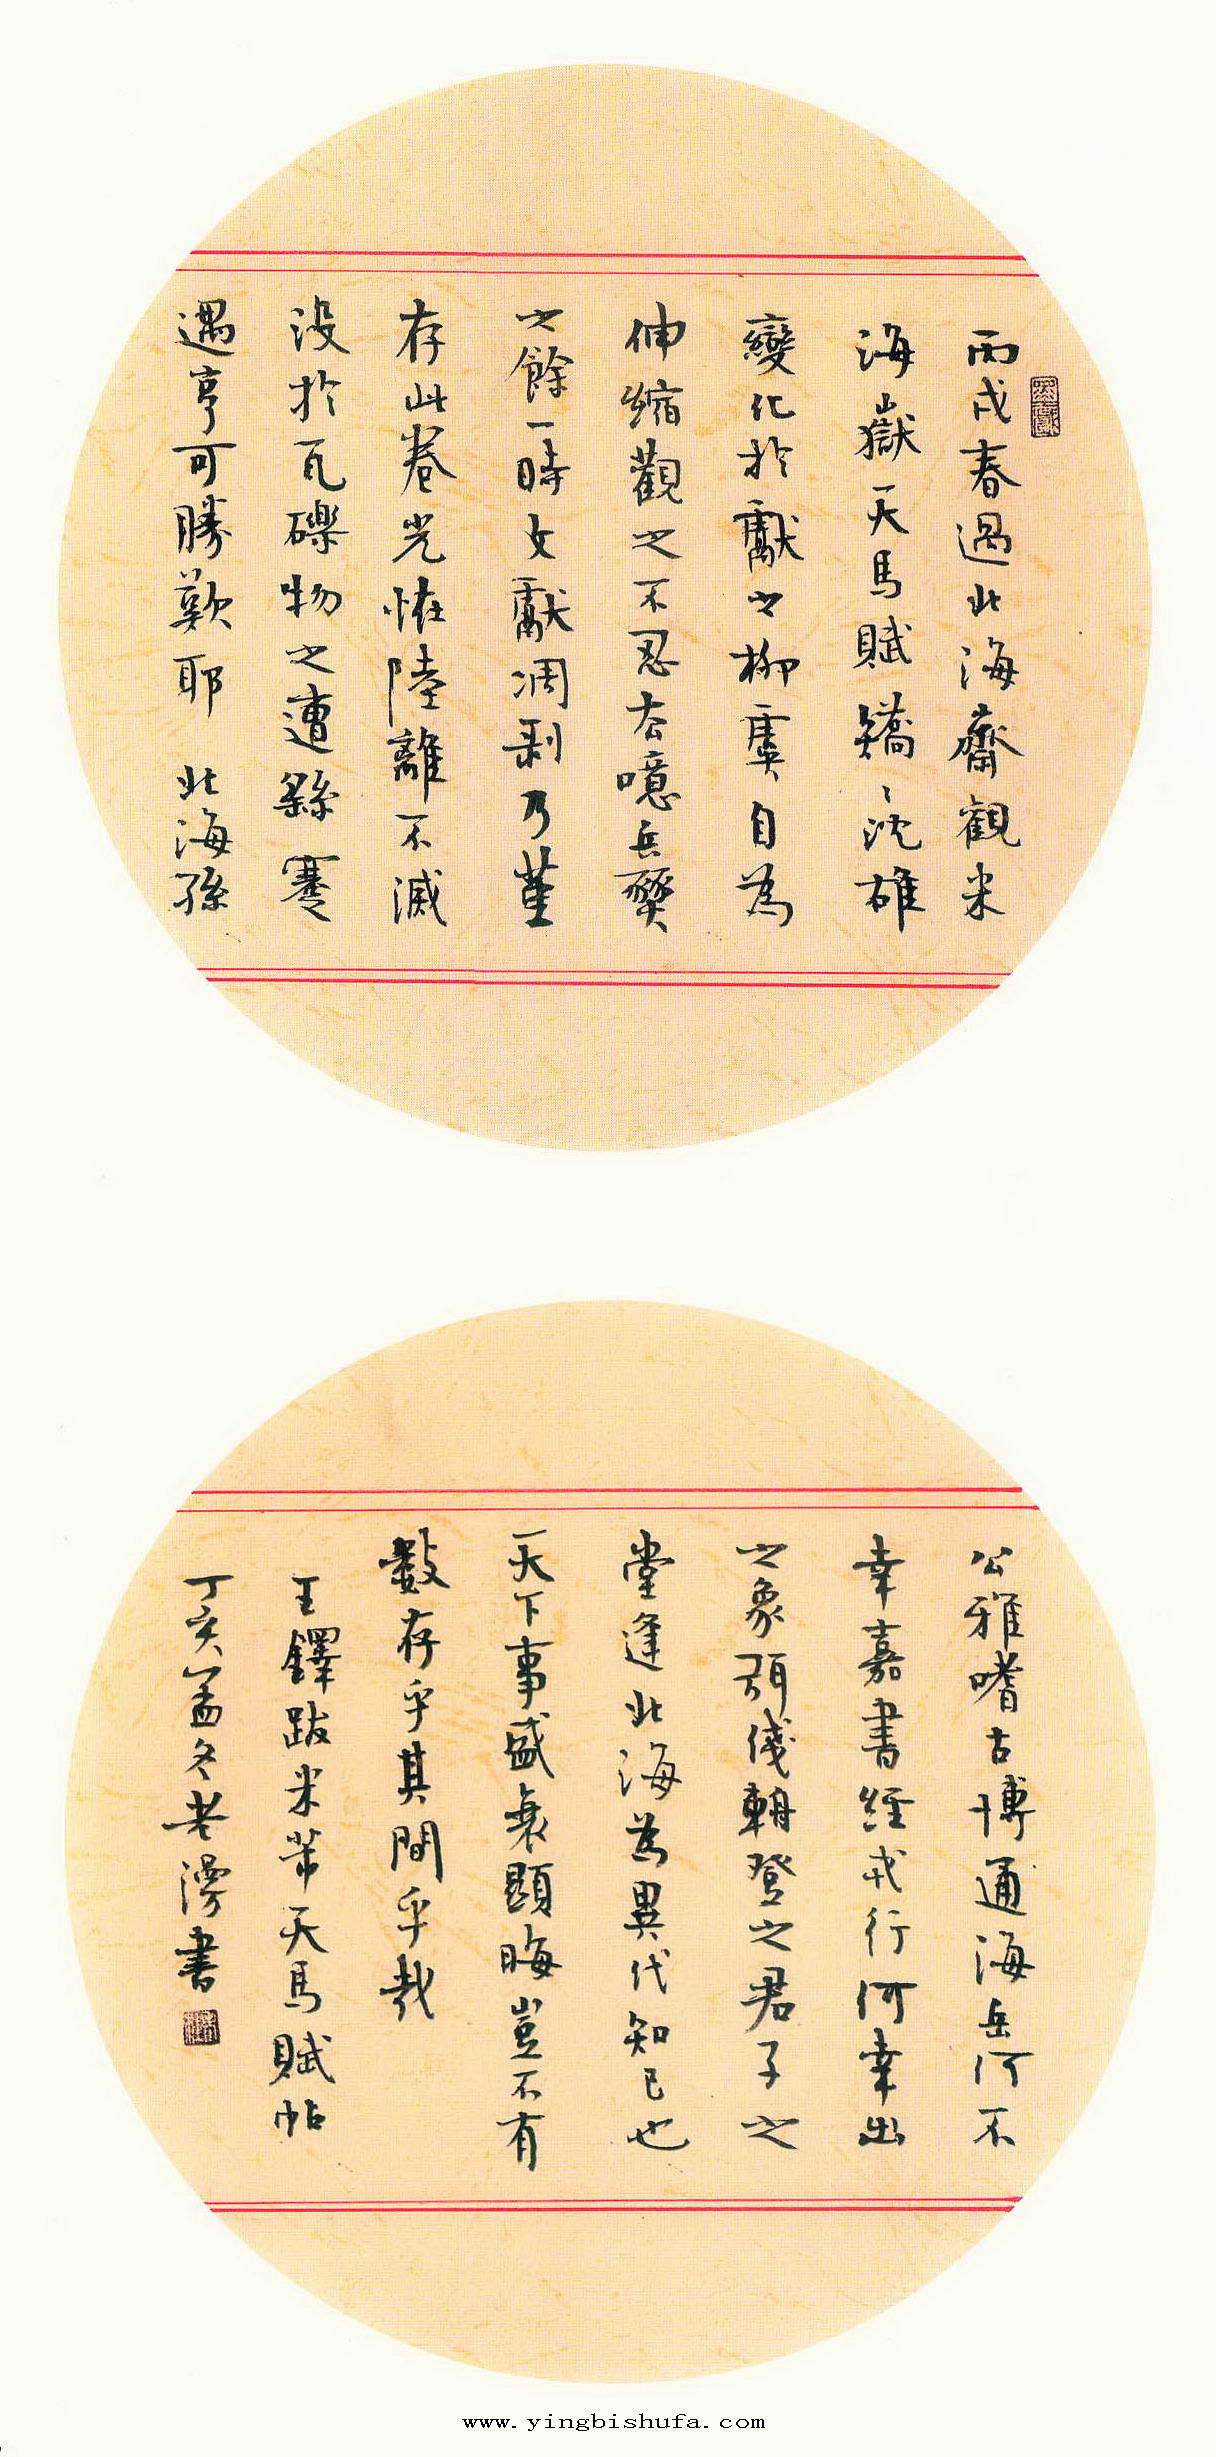 丙戌春過北海齋觀米
海嶽天馬賦矯〻沈雄
變化於獻之柳虞自為
伸縮觀之不忍去噫兵燹
之餘一時文獻凋剥乃堇
存此卷光怪陸離不滅
没於瓦礫物之遭繇蹇
遇亨可勝歎耶 北海孫
公雅嗜古博通海岳何不
幸嘉書經戎行何幸出
之象弭後輈登之君子之
堂逢北海為異代知己也
天下事盛衰顯晦豈不有
數存乎其間乎哉
王鐸跋米芾天馬賦帖
丁亥孟冬老漫書
www.yingbishufa.com